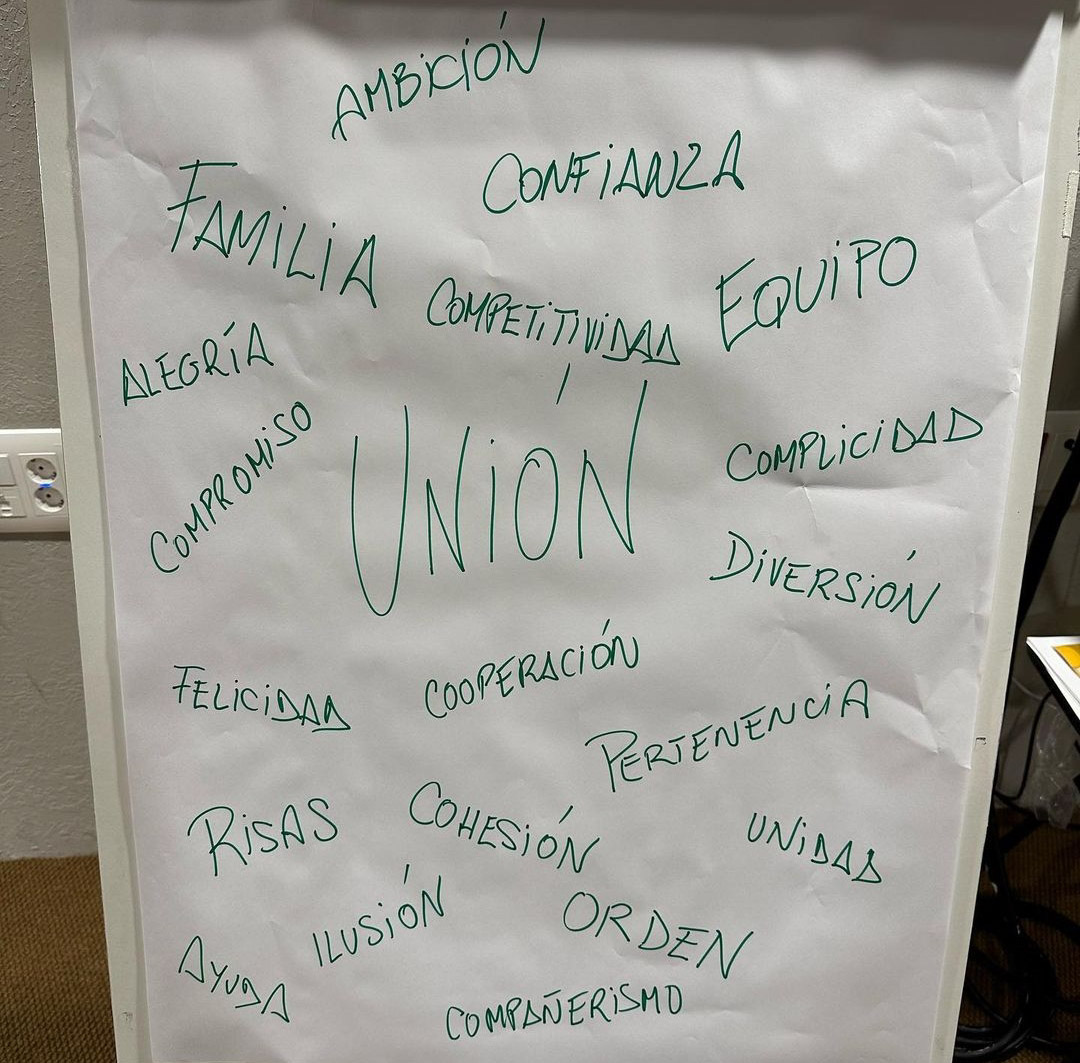 AMBICIÓN
CONFIANZA
FAMILIA
EQUIPO
COMPETITIVIDAD
ALEGRÍA
UNIÓN
COMPROMISO
COMPLICIDAD
DIVERSIÓN
FELICIDAD
COOPERACIÓN
PERTENENCIA
RISAS
COHESIÓN
UNIDAD
ILUSIÓN
ORDEN
AYUDA
COMPAÑERISMO